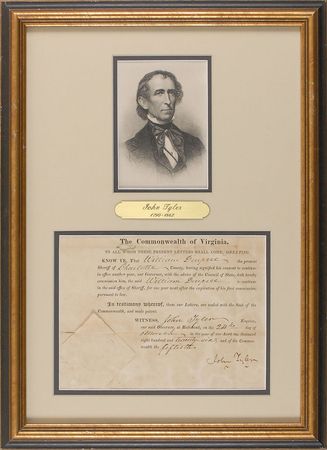 John Tyler
1790-1862
The Commonwealth of Virginia,
TO ALL WHOM THESE PRESENT LETTERS SHALL COME, GREETING
KNOW YE, That William the present
Sheriff of Charlotte County, having signified his consent to continue in
office another year, our Governor, with the advice of the Council of State, doth hereby
commission him, the said William to continue
in the said office of Sheriff, for one year next after the expiration of his first commission
pursuant to law.
In testimony whereof, these our Letters, are sealed with the Seal of the
Commonwealth, and made patent.
WITNESS, John Tyler Esquire,
our said Governor, at Richmond, on the day of
in the year of our Lord one thousand
eight hundred and twenty six and of the Common-
wealth the fiftieth
John Tyler